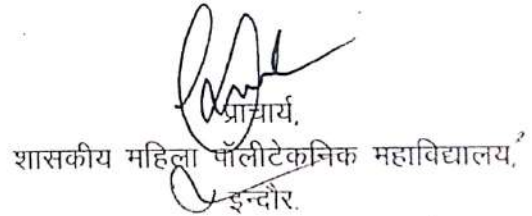 प्राचार्य,
शासकीय महिला पॉलीटेकनिक महाविद्यालय,
इन्दौर.